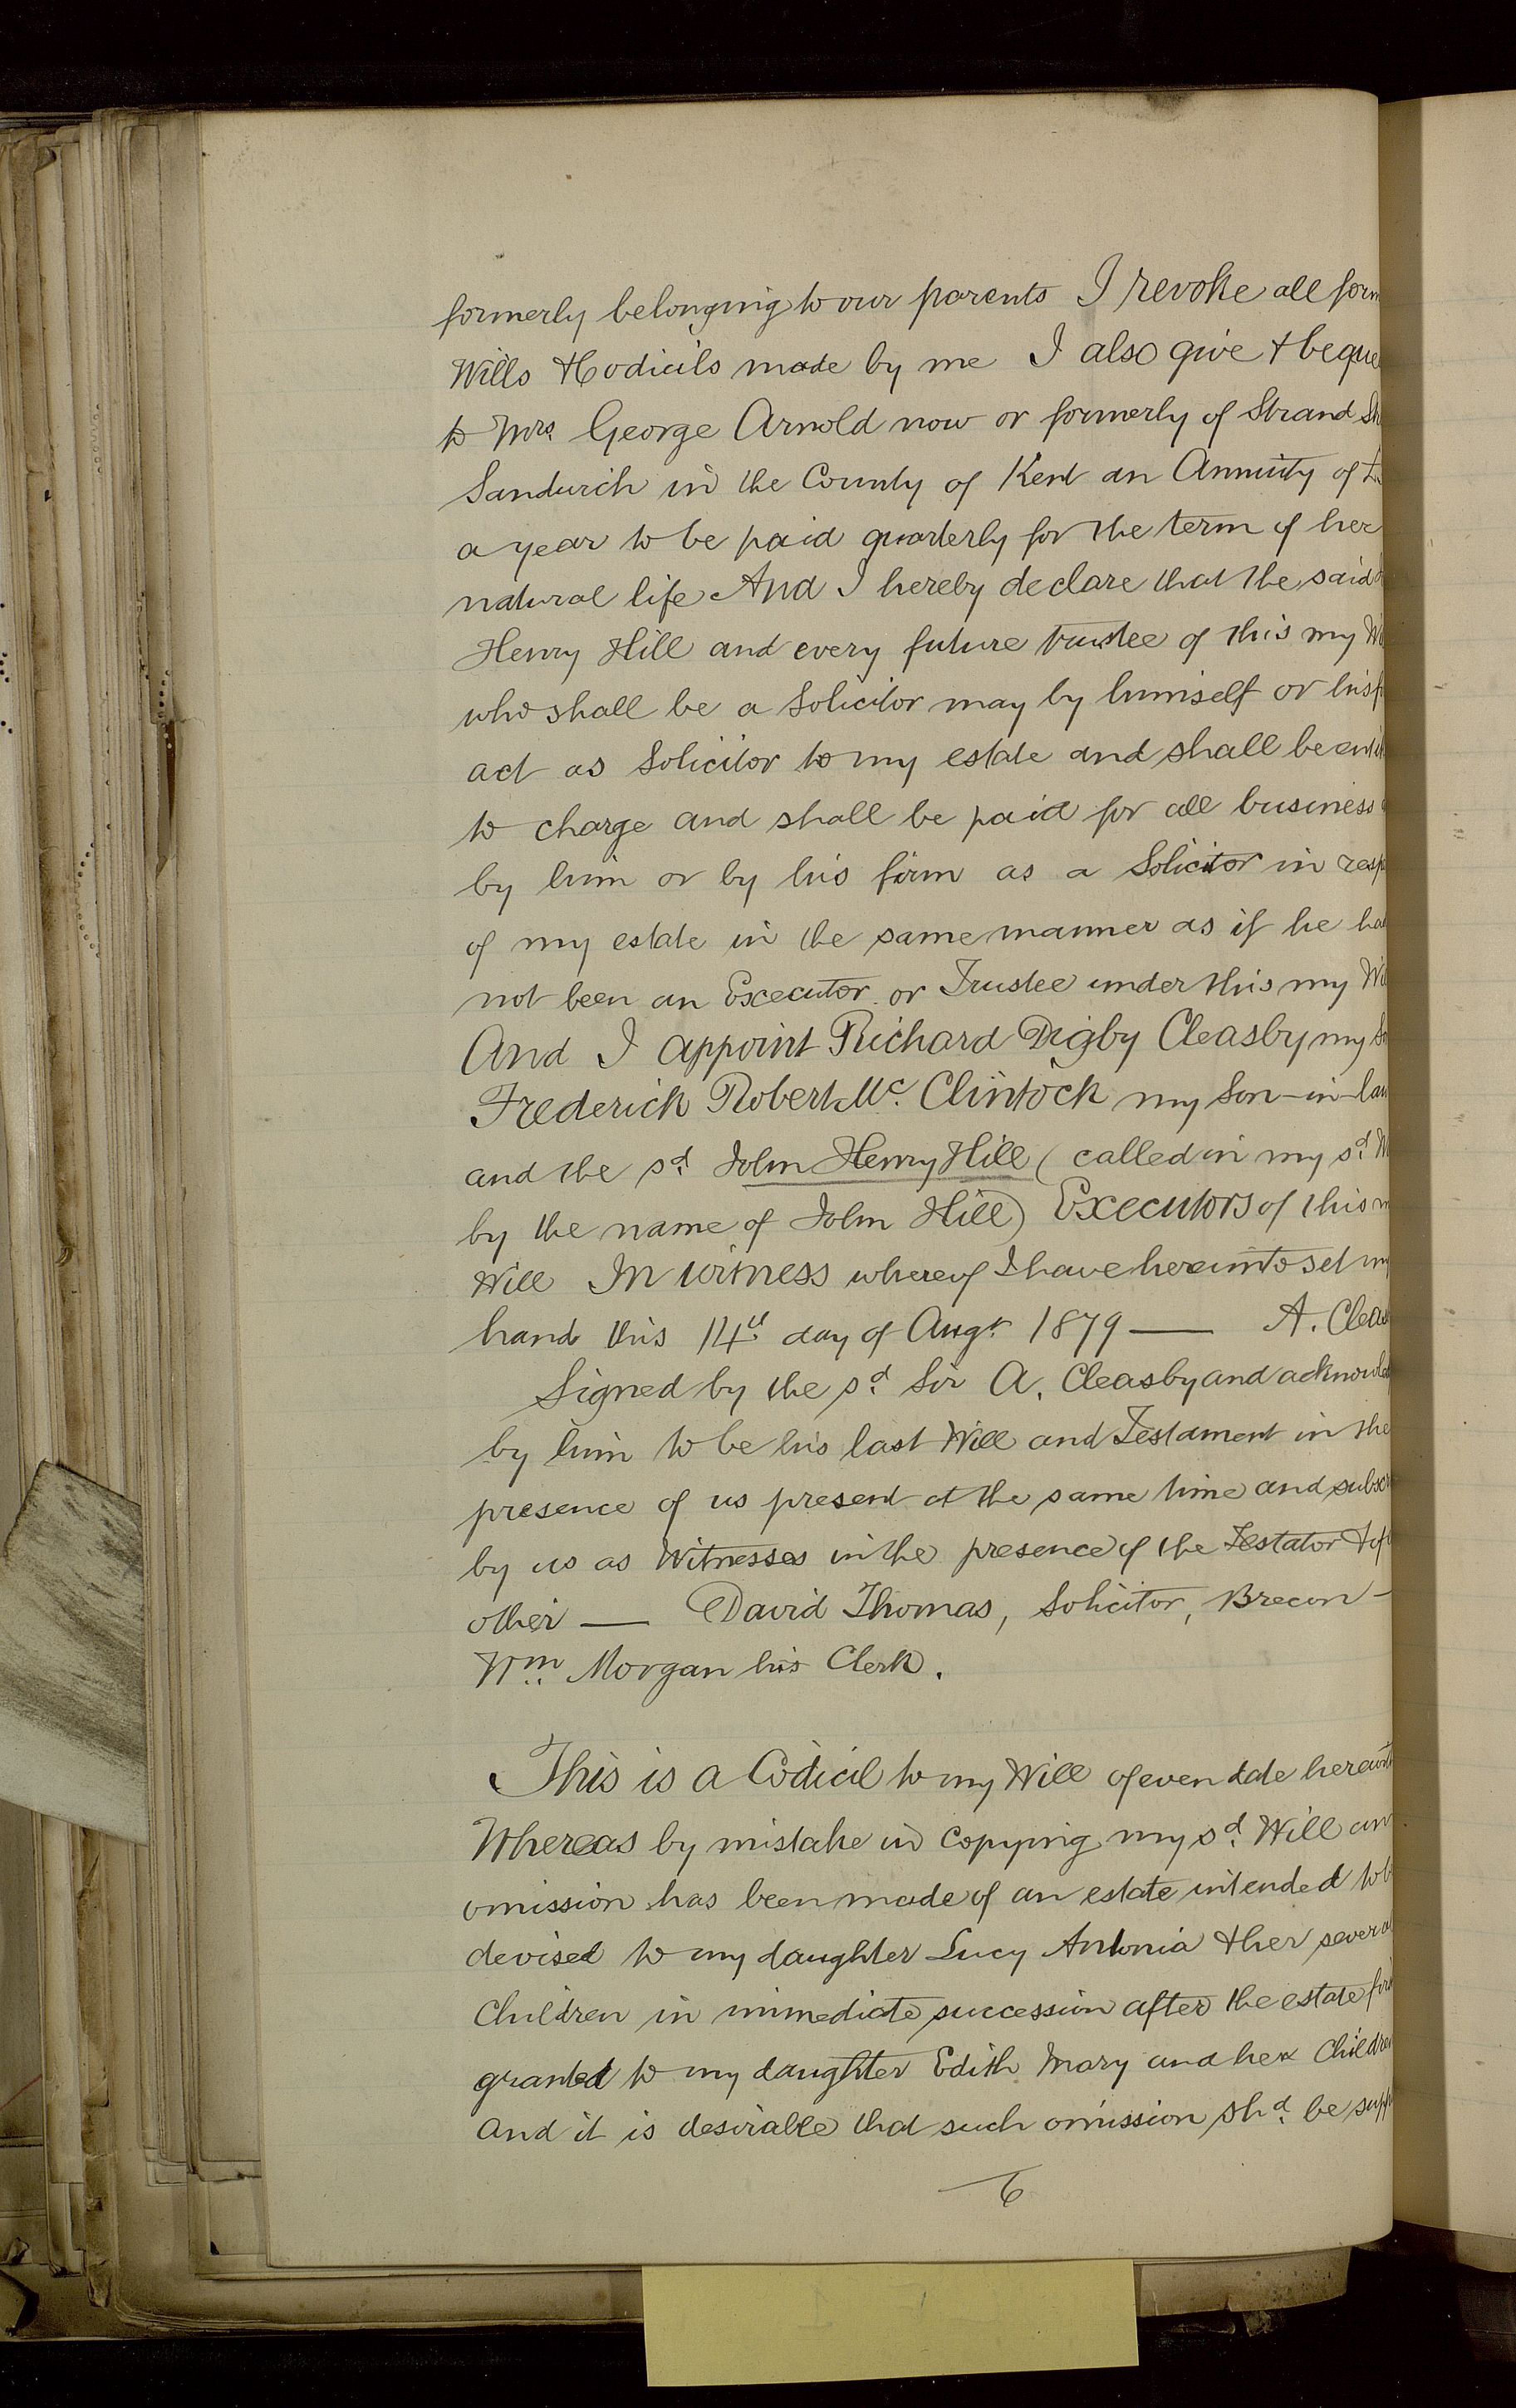 formerly belonging to our parents I revoke all form
Wills & Codicils made by me I also give & beque
to Mrs. George Arnold now or formerly of Strand St
Sandwich in the County of Kent an Annuity of
a year to be paid quarterly for the term of her
natural life And I hereby declare that the said
Henry Hill and every future trustee of this my Wi
who shall be a Solicitor may by himself or his f
act as Solicitor to my estate and shall be entit
to charge and shall be paid for all business
by him or by his firm as a Solicitor in resp
of my estate in the same manner as if he had
not been an Executor or Trustee under this my Wil
And I appoint Richard Digby Cleasby my So
Frederick Robert Mc. Clintock my Son-in-law
and the sd. John Henry Hill (called in my sd. W
by the name of John Hill) Executors of this m
Will In witness whereof I have hereunto set my
hand this 14th day of Augt. 1879 — A. Cleas
Signed by the sd. Sir A. Cleasby and acknowled
by him to be his last Will and Testament in the
presence of us present at the same time and subscr
by us as Witnesses in the presence of the Testator & of
other — David Thomas, Solicitor, Brecon —
Wm. Morgan his Clerk.
This is a Codicil to my Will of even date herewith
Whereas by mistake in copying my sd. Will an
omission has been made of an estate intended to b
devised to my daughter Lucy Antonia & her several
Children in immediate succession after the estate
granted to my daughter Edith Mary and her Children
And it is desirable that such omission shd. be supp
6